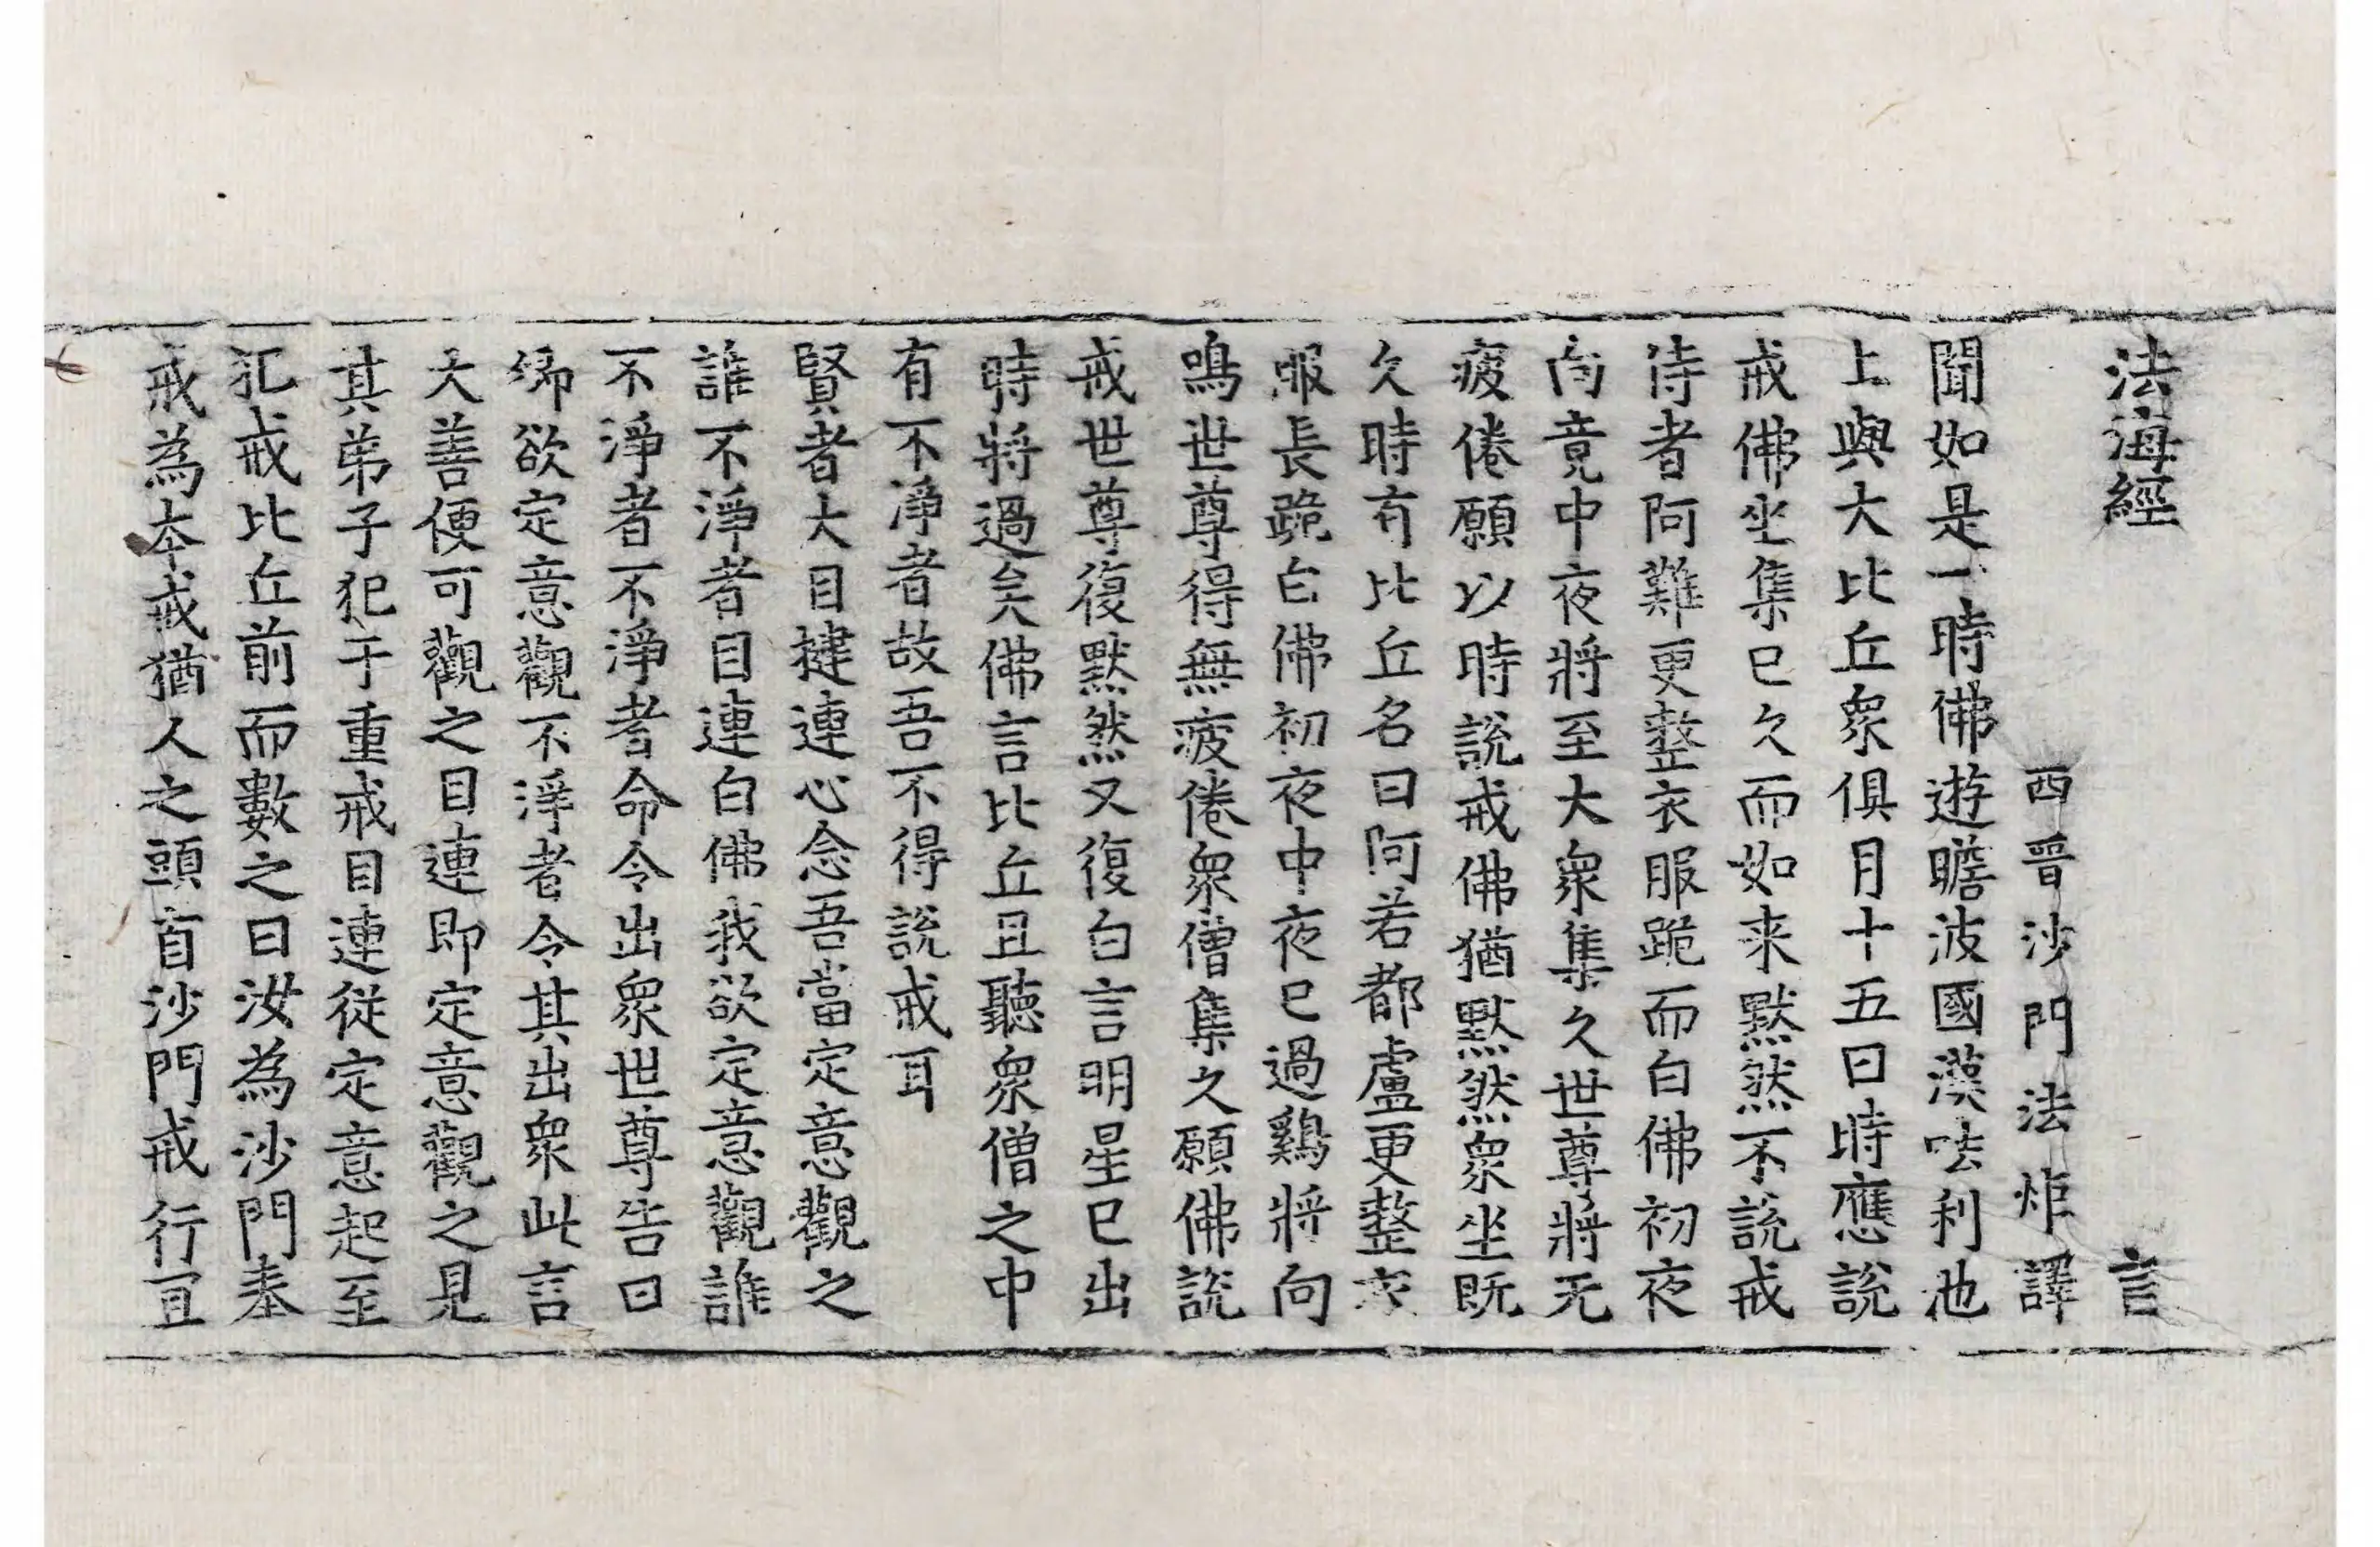 法海經 言
西晉沙門法炬譯
聞如是一時佛遊瞻波國漢呿利池
上與大比丘衆俱月十五日時應說
戒佛坐集已久而如来默然不說戒
侍者阿難更整衣服跪而白佛初夜
向竟中夜將至大衆集久世尊將无
疲倦願以時說戒佛猶默然衆坐旣
久時有比丘名曰阿若都盧更整衣
服長跪白佛初夜中夜已過鷄將向
鳴世尊得無疲倦衆僧集久願佛說
戒世尊復默然又復白言明星已出
時將過矣佛言比丘且聽衆僧之中
有不淨者故吾不得說戒耳
賢者大目揵連心念吾當定意觀之
誰不淨者目連白佛我欲定意觀誰
不淨者不淨者命令出衆世尊告曰
卿欲定意觀不淨者令其出衆此言
大善便可觀之目連即定意觀之見
其弟子犯于重戒目連從定意起至
犯戒比丘前而數之曰汝為沙門奉
戒為本戒猶人之頭首沙門戒行宜